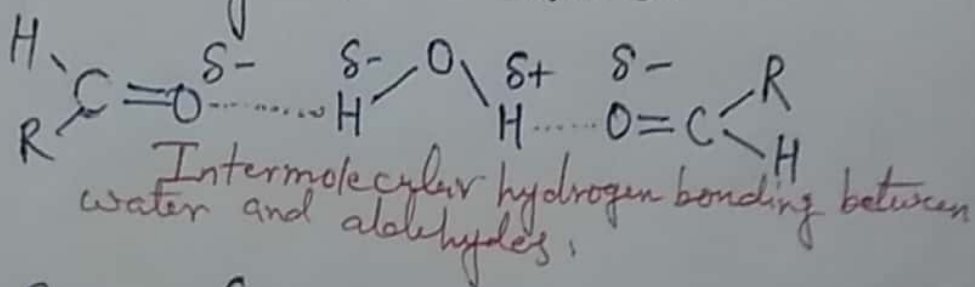 H δ- δ- O δ+ δ- R
C=O........H H.....O=C
R H
Intermolecular hydrogen bonding between
water and aldehydes.